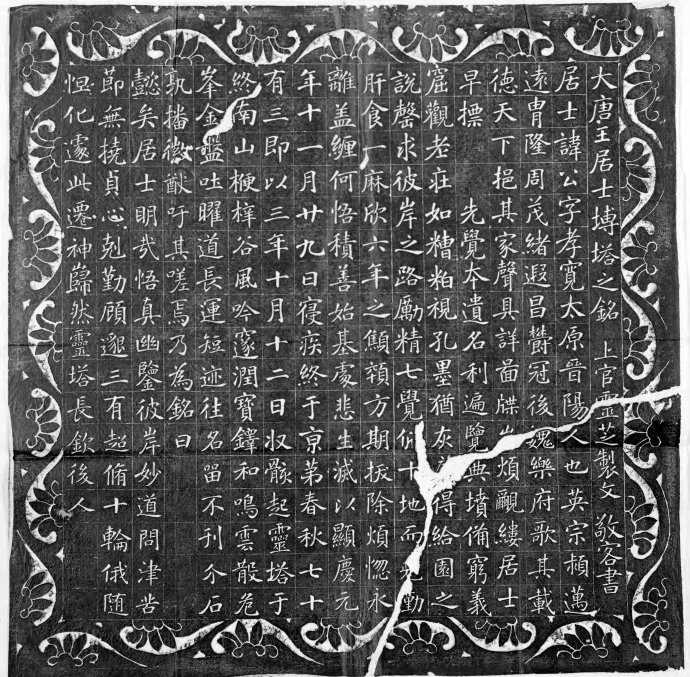 大唐王居士塼塔之銘 上官靈芝製文 敬客書
居士諱公字孝寬太原晉陽人也英宗穎邁
遠冑隆周茂緒遐昌欝冠後魏樂府歌其載
德天下挹其家聲具詳啚牒豈煩覼縷居士
早標 先覺本遺名利遍覽典墳備窮義
窟觀老莊如糟粕視孔墨猶灰得給園之
說罄求彼岸之路勵精七覺仰十地而克勤
肝食一麻欣六年之顦頩方期拔除煩惚永
離盖纏何悟積善始基處悲生滅以顯慶元
年十一月廿九日寑疾終于京第春秋七十
有三即以三年十月十二日收骸起靈塔于
終南山楩梓谷風吟邃澗寶鐸和鳴雲散危
峯金盤吐曜道長運短迹往名留不刊介石
孰播徽猷吁其嗟焉乃為銘曰
懿矣居士明哉悟真幽鑒彼岸妙道問津苦
節無撓貞心剋勤顧邈三有超脩十輪俄随
怛化遽此遷神巋然靈塔長欽後人